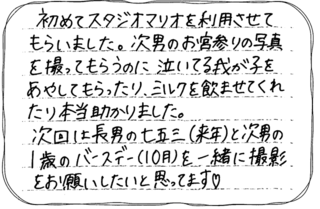 初めてスタジオマリオを利用させて
もらいました。次男のお宮参りの写真
を撮ってもらうのに 泣いてる我が子を
あやしてもらったり、ミルクを飲ませてくれ
たり本当助かりました。
次回は長男の七五三(来年)と次男の
1歳のバースデー(10月)を一緒に撮影
をお願いしたいと思ってます♡